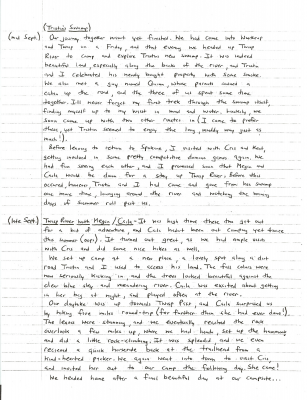 (Trista's Swamp)
(mid Sept.) Our journey together wasn't yet finished. We had come into Winthrop
and Twisp on a Friday, and that evening we headed up Twisp
River to camp and explore Trista's new swamp. It was indeed
beautiful land, especially along the banks of the river, and Trista
and I celebrated his newly bought property with some smoke.
We also met a guy named Quinn whose parents owned a
cabin up the road and the three of us spent some time
together. I'll never forget my first trek through the swamp itself,
finding myself up to my waist in mud and water, luckily, we
soon came up with two other routes in (I came to prefer
these, yet Trista seemed to enjoy the long, muddy way just as
much!).
Before leaving to return to Spokane, I visited with Cris and Kend,
getting involved in some pretty competitive domino games again. We
had fun seeing each other, and I promised him that Megin and
Carla would be down for a stay up Twisp River. Before this
occurred, however, Trista and I had come and gone from his swamp
one more time, lounging around the river and watching the waning
days of summer roll past us.
(late Sept.) Twisp River with Megin / Carla - It was high time these two got out
for a bit of adventure, and Carla hadn't been out camping yet twice
this summer (ours). It turned out great, as we had ample visits
with Cris and did some nice hikes as well.
We set up camp at a new place, a lovely spot along a dirt
road Trista and I used to access his land. The fall colors were
now seriously kicking in and the trees looked beautiful against the
clear blue sky and meandering river. Carla was excited about getting
in her bag at night, and played often at the river.
Our daytrip was up towards Twisp Pass and Carla surprised us
by hiking five miles round-trip (far further than she had ever done!).
The leaves were stunning, and we eventually reached the rock
overlook a few miles up, where we had lunch, set up the hammock
and did a little rock-climbing. It was splendid, and we even
received a quick horseback ride at the trailhead from a
kind-hearted packer. We again went into town to visit Cris,
and invited her out to our camp the following day. She came!
We headed home after a final beautiful day at our campsite...